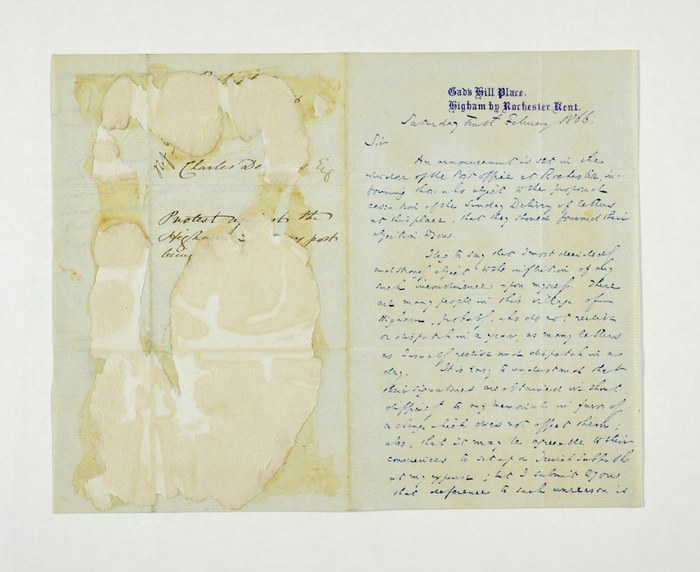 Charles De s Esq
Protest ag the
Higha post
being
Gad's Hill Place.
Higham by Rochester, Kent.
Saturday February 1866.
Sir
An announcement is set in the
window of the Post Office at Rochester, in-
forming those who object to the proposed
cessation of the Sunday Delivery of letters
at this place, that they should forward their
objection to you.
I beg to say that I most decidedly
and strongly object to the infliction of any
such inconvenience upon myself. There
are many people in this village of
Higham, probably, who do not receive
or dispatch in a year, as many letters
as I myself receive and dispatch in a
day. It is easy to understand that
their signatures are obtained without
difficulty to any memorials in favor of
a change which does not affect them;
also, that it may be agreeable to their
consciences to set up a Jewish Sabbath
at my expense; but I submit to you
that deference to such unreason is